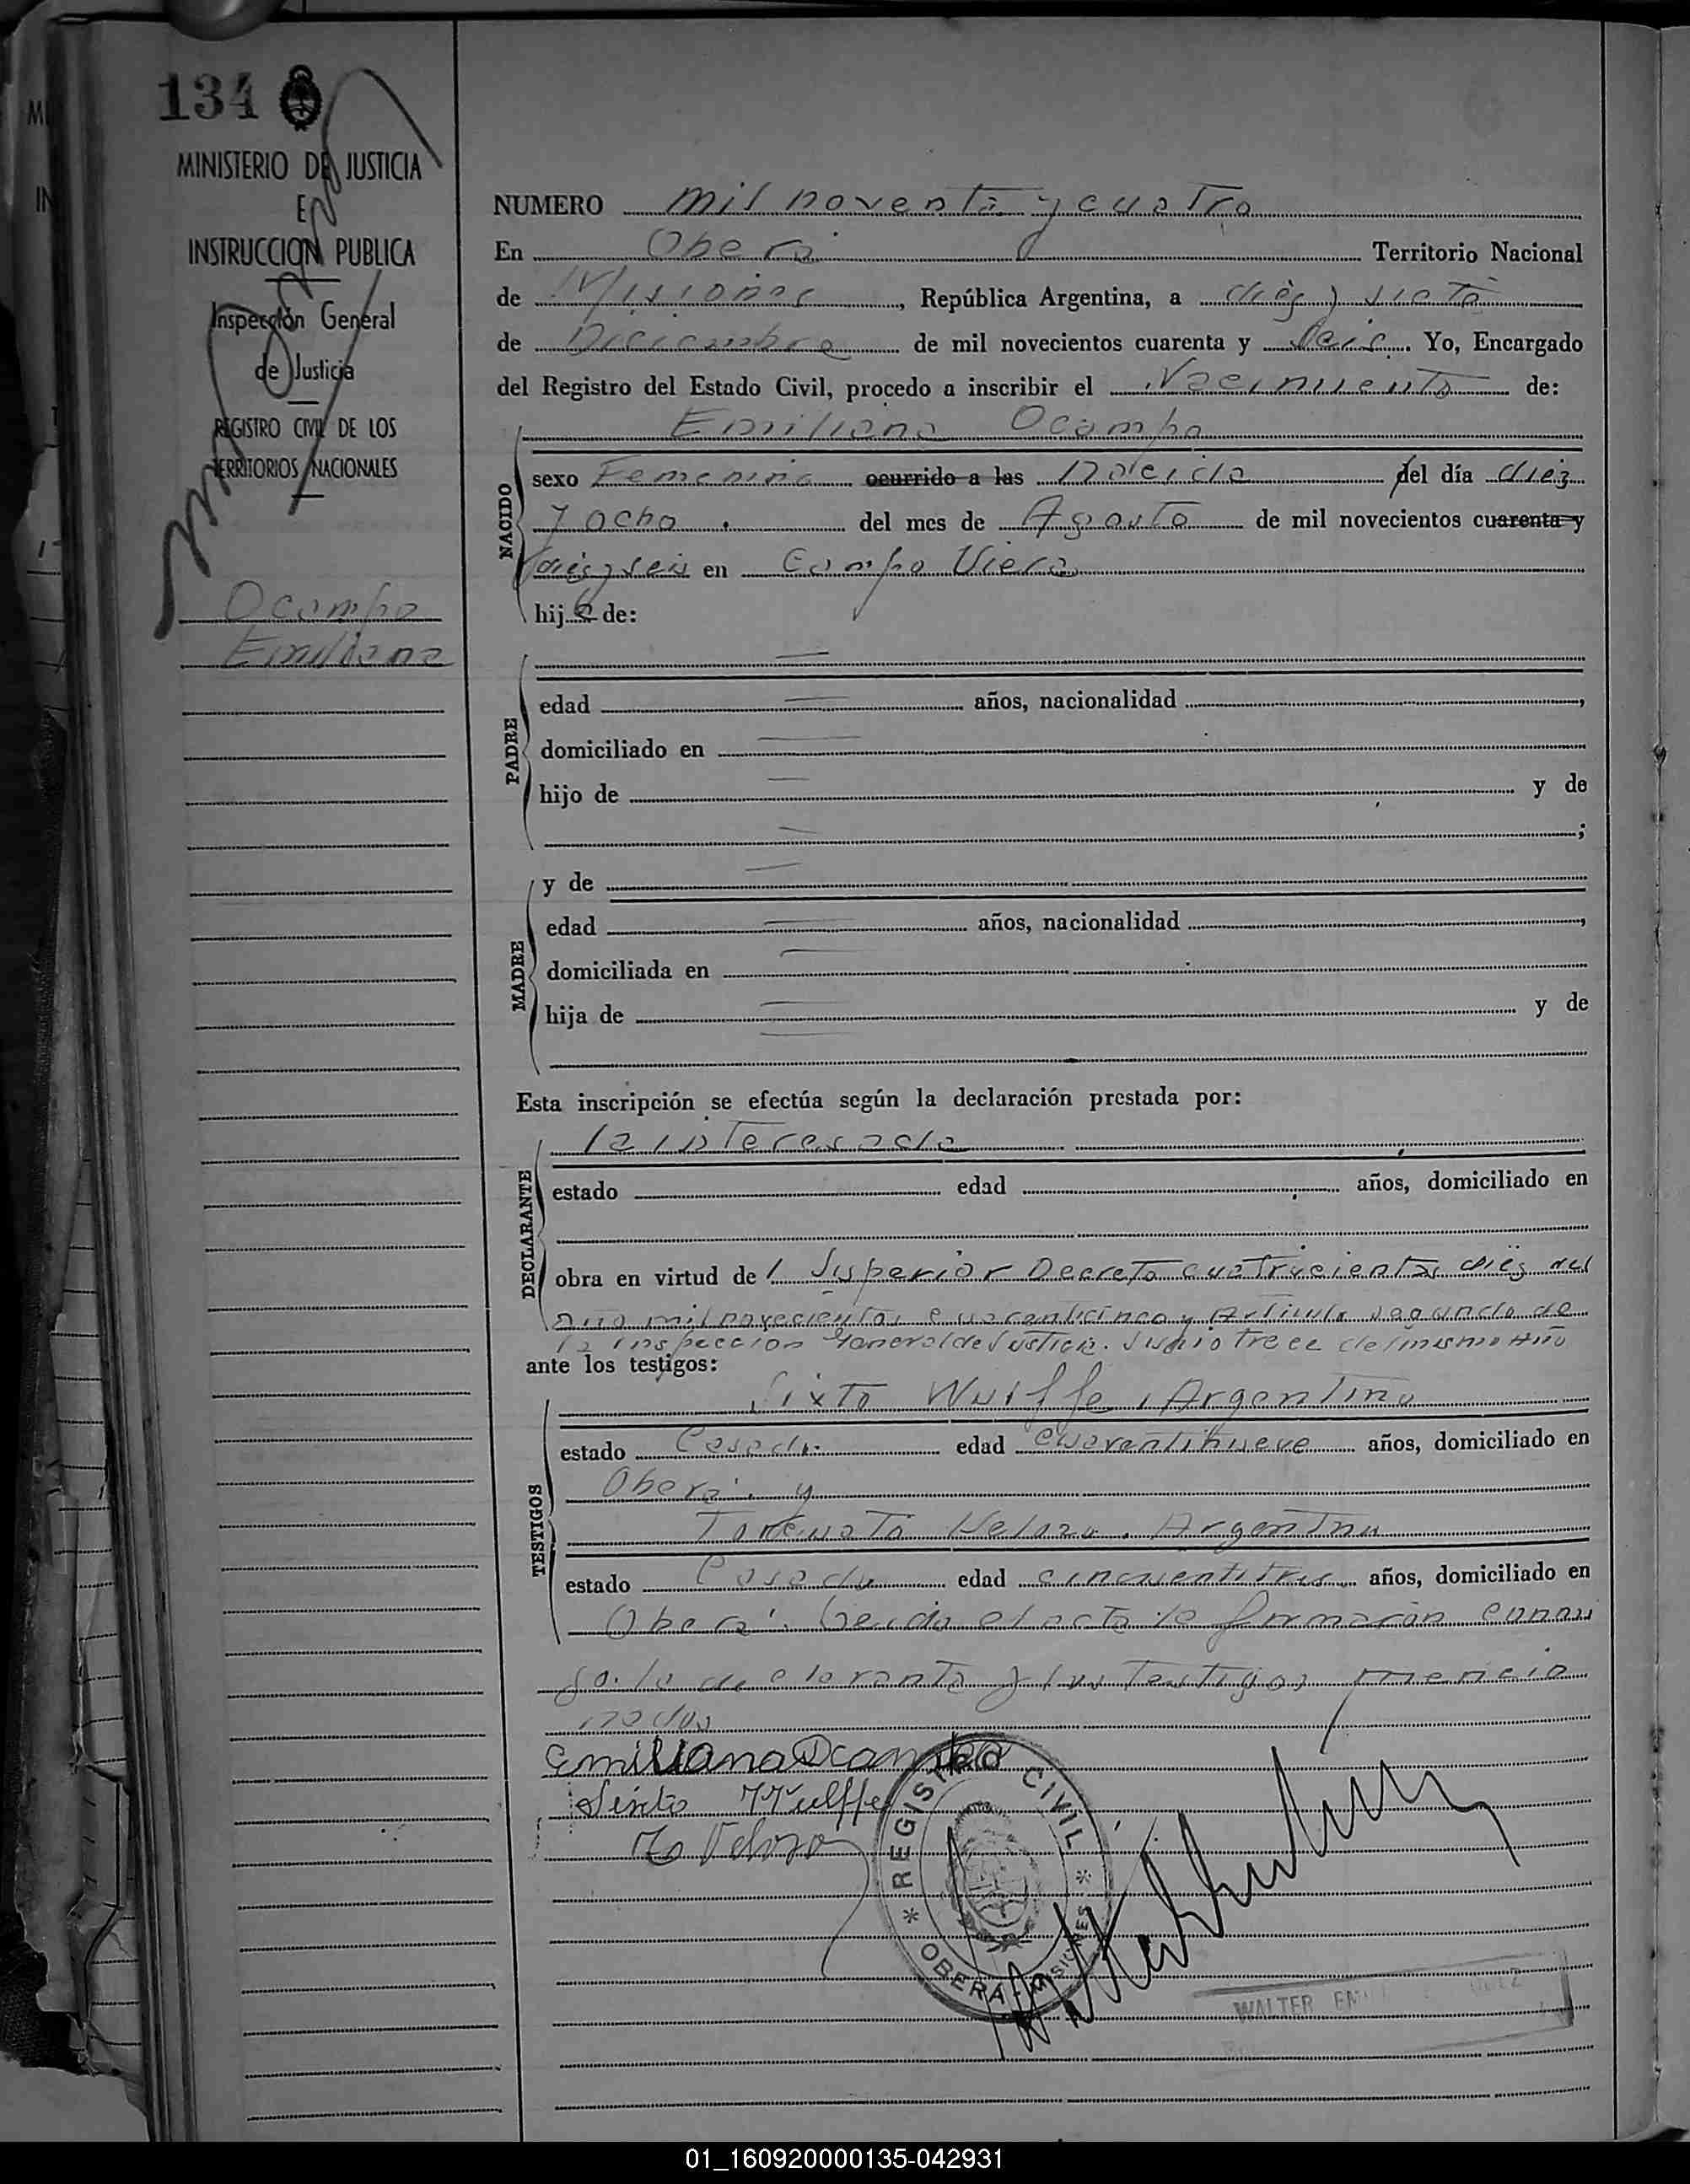 134
MINISTERIO DE JUSTICIA
E
INSTRUCCION PUBLICA
Inspección General
de Justicia
REGISTRO CIVIL DE LOS
TERRITORIOS NACIONALES
Ocampo
Emiliana
NUMERO mil noventa y cuatro
En Oberá Territorio Nacional
de Misiones, República Argentina, a diez y siete
de Diciembre de mil novecientos cuarenta y seis. Yo, Encargado
del Registro del Estado Civil, procedo a inscribir el Nacimiento de:
Emiliana Ocampo
NACIDO
sexo Femenino ocurrido a las Nacida del día diez
y ocho del mes de Agosto de mil novecientos cuarenta y
diez y seis en Campo Viera
hija de:
PADRE
edad años, nacionalidad ,
domiciliado en
hijo de y de
;
MADRE
y de
edad años, nacionalidad ,
domiciliada en
hija de y de
Esta inscripción se efectúa según la declaración prestada por:
DECLARANTE
la interesada
estado edad años, domiciliado en
obra en virtud del Superior Decreto cuatrocientos diez del
año mil novecientos cuarenticinco y Artículo segundo de
la Inspeccion General de Justicia. Junio trece del mismo Año
ante los testigos:
TESTIGOS
Sixto Wulffe, Argentino
estado Casado. edad cuarentinueve años, domiciliado en
Oberá. y
Torcuato Veloso. Argentino
estado Casado edad cincuentitres años, domiciliado en
Oberá. Leida el acta la firmarán conmi
go. la declarante y los testigos mencio
nados
Emiliana Ocampo
Sixto Wulffe
To Veloso
REGISTRO CIVIL
OBERA - MISIONES
WALTER
01_160920000135-042931